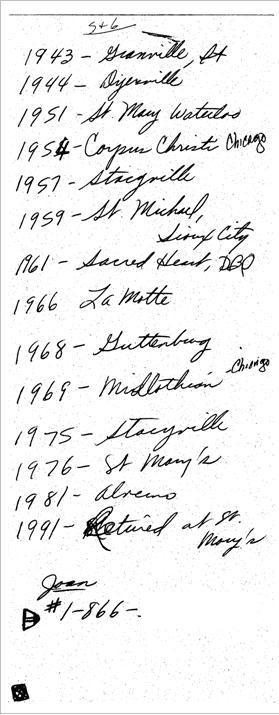 5+6
1943 - Granville, St
1944 - Dyersville
1951 - St Mary Waterloo
1954 - Corpus Christi Chicago
1957 - Stacyville
1959 - St. Michael,
Sioux City
1961 - Sacred Heart, DBQ
1966 La Motte
1968 - Guttenburg
1969 - Midlothian Chicago
1975 - Stacyville
1976 - St Mary's
1981 - Alvernо
1991 - Retired at St.
Mary's
Joan
#1-866-.